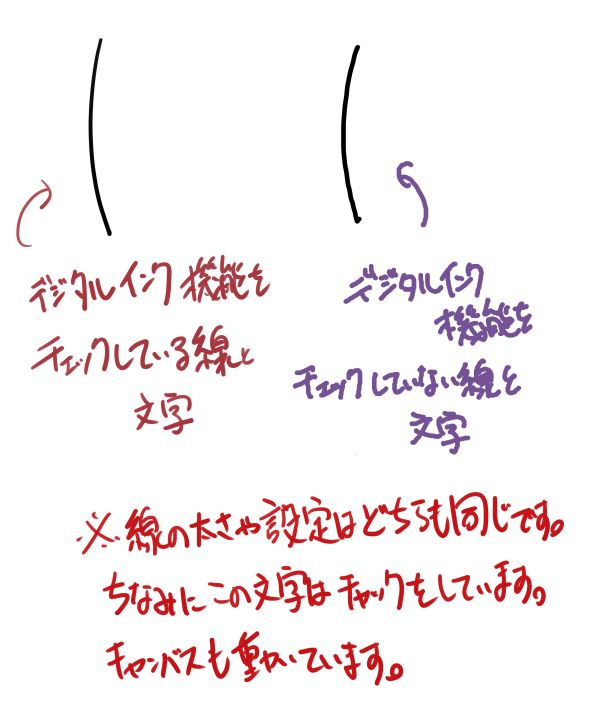 デジタルインク機能を
チェックしている線と
文字
デジタルインク
機能を
チェックしていない線と
文字
※線の太さや設定はどちらも同じです。
ちなみにこの文字はチャックをしています。
キャンバスも重ねています。